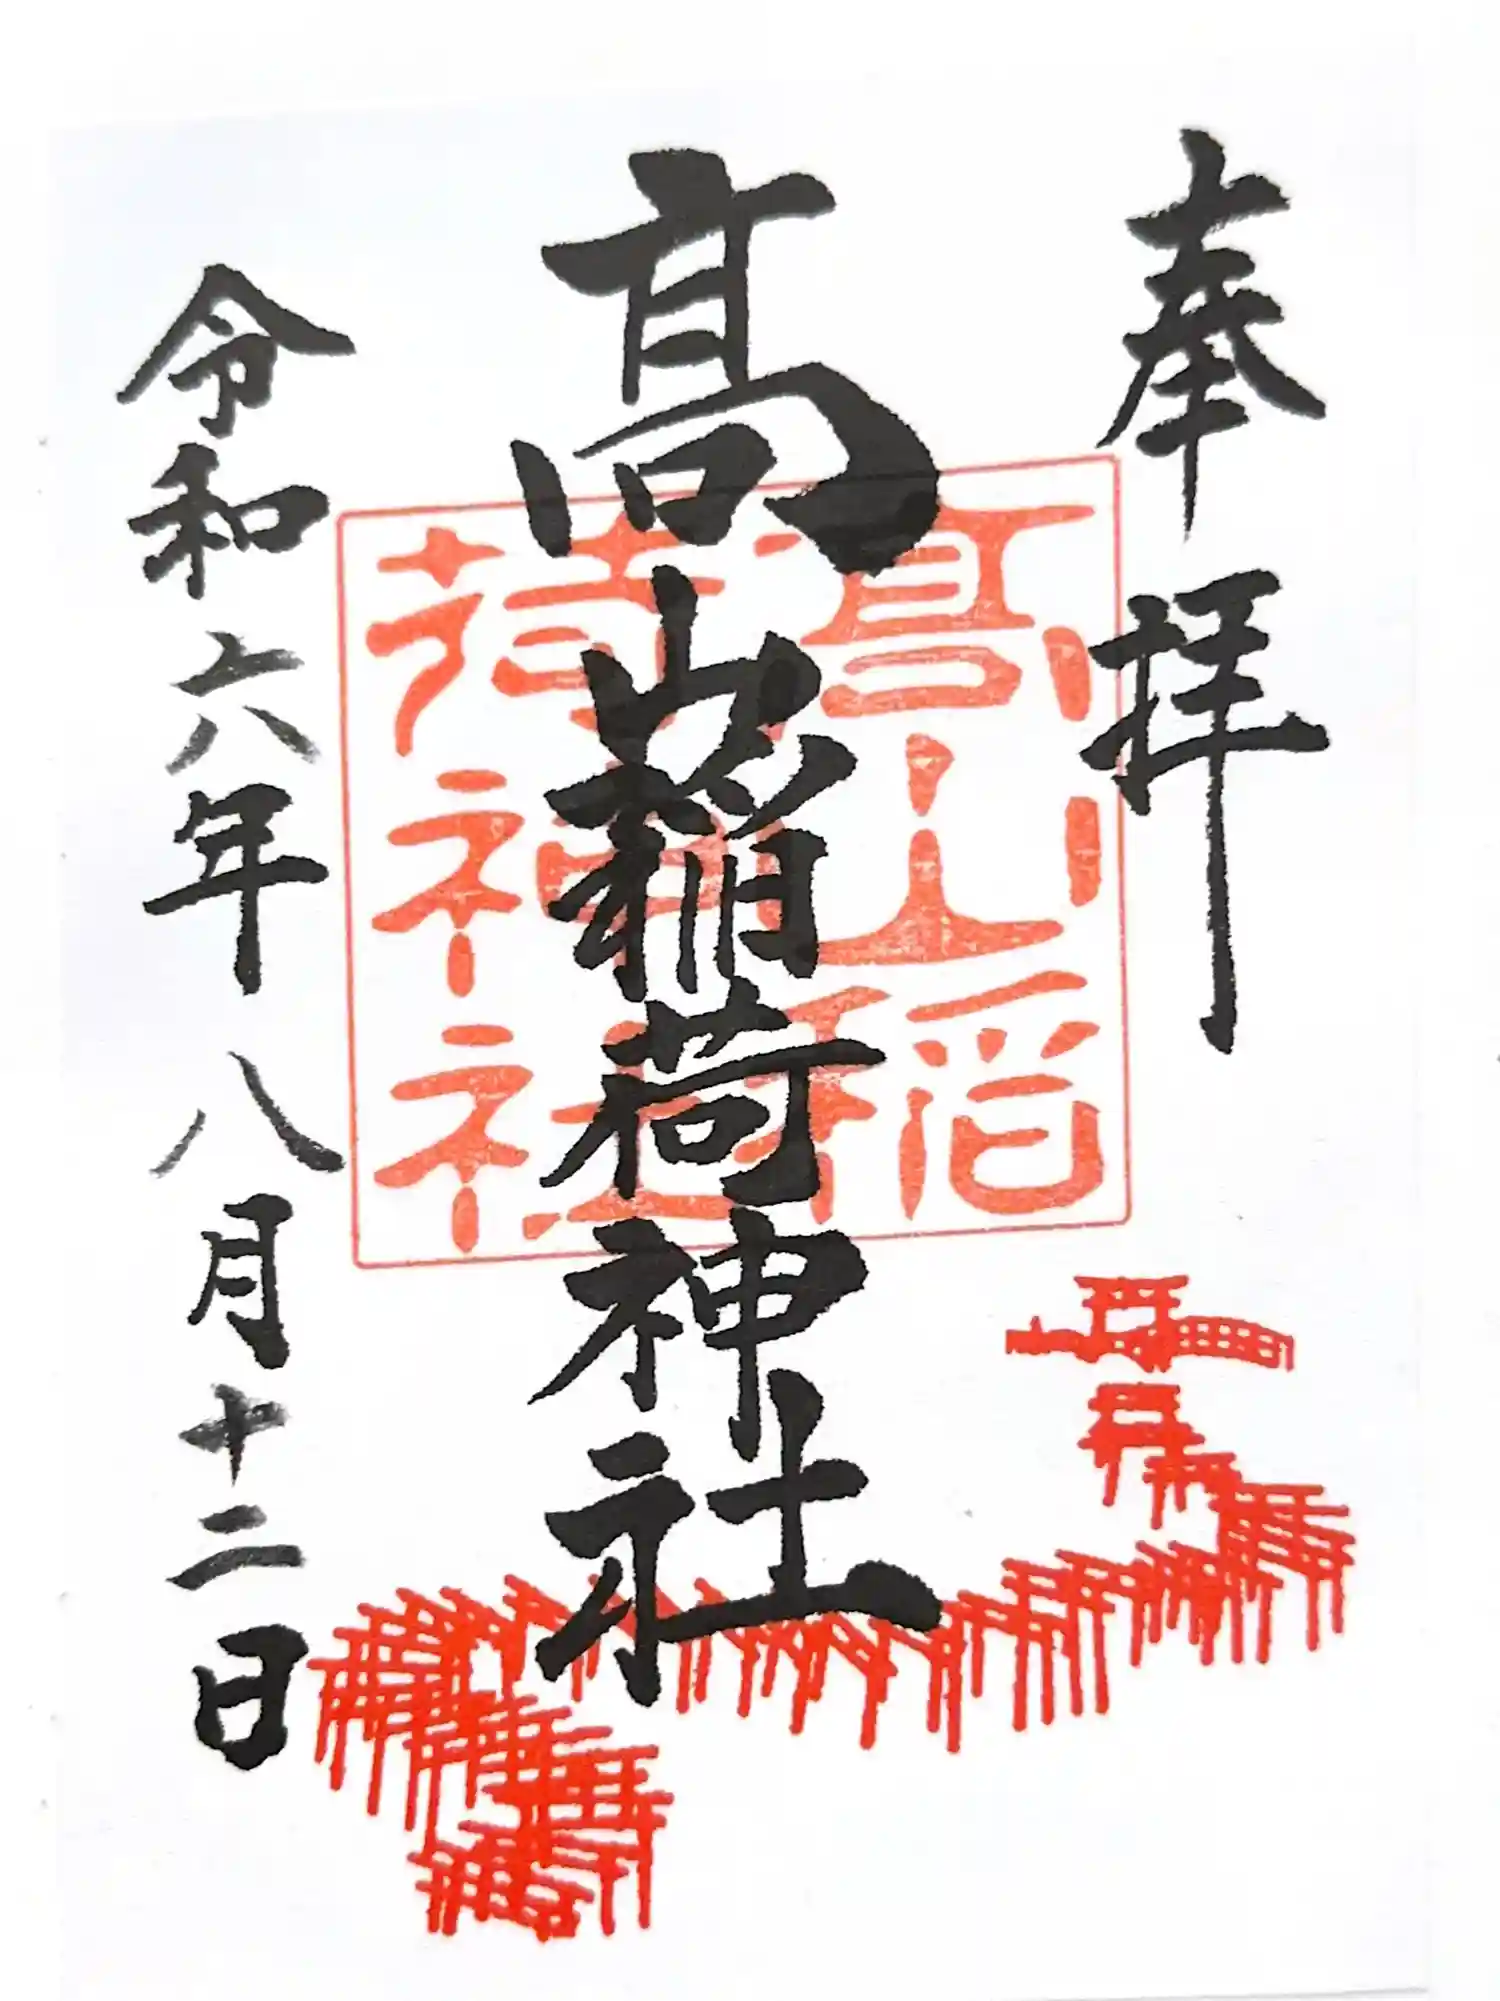 奉拝
髙山稲荷神社
髙山稲
荷神社
令和六年八月十二日